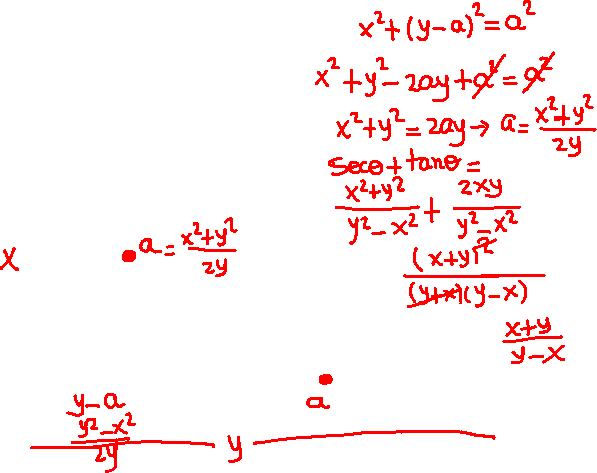 x² + (y - a)² = a²
x² + y² - 2ay + a² = a²
x² + y² = 2ay → a = (x² + y²)/(2y)
secθ + tanθ =
(x² + y²)/(y² - x²) + 2xy/(y² - x²)
(x + y)²/((y + x)(y - x))
(x + y)/(y - x)
x
a = (x² + y²)/(2y)
a
y - a
(y² - x²)/(2y)
y